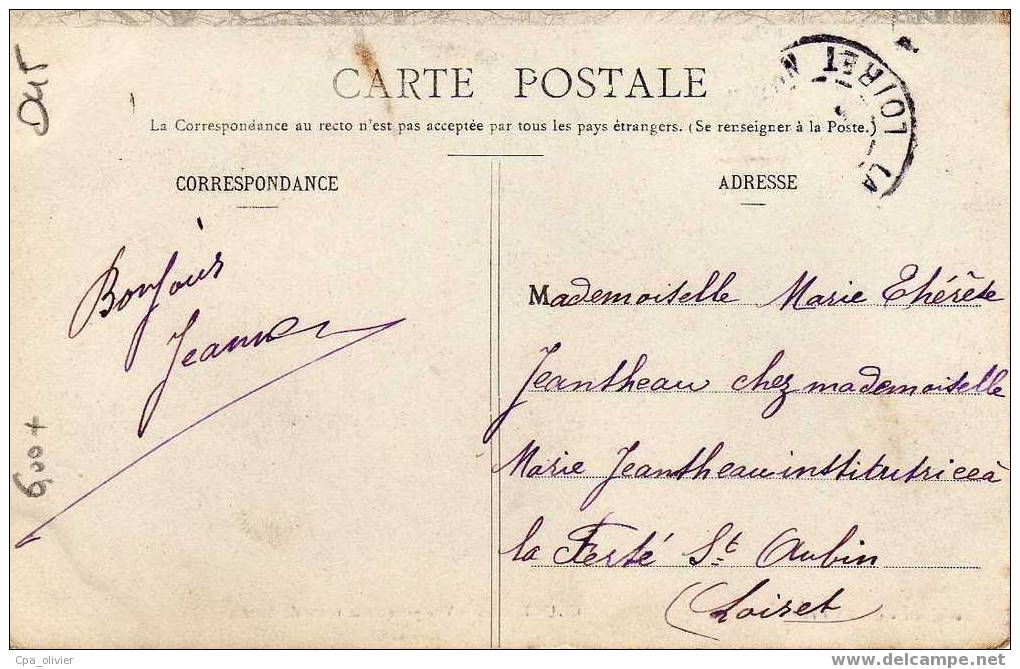 CARTE POSTALE
La Correspondance au recto n'est pas acceptée par tous les pays étrangers. (Se renseigner à la Poste.)
CORRESPONDANCE
Bonjour
Jeanne
ADRESSE
Mademoiselle Marie Thérèse
Jeantheau chez mademoiselle
Marie Jeantheau institutrice à
la Ferté St Aubin
(Loiret)
LA
LOIRET
Cpa_olivier
delcampe.net